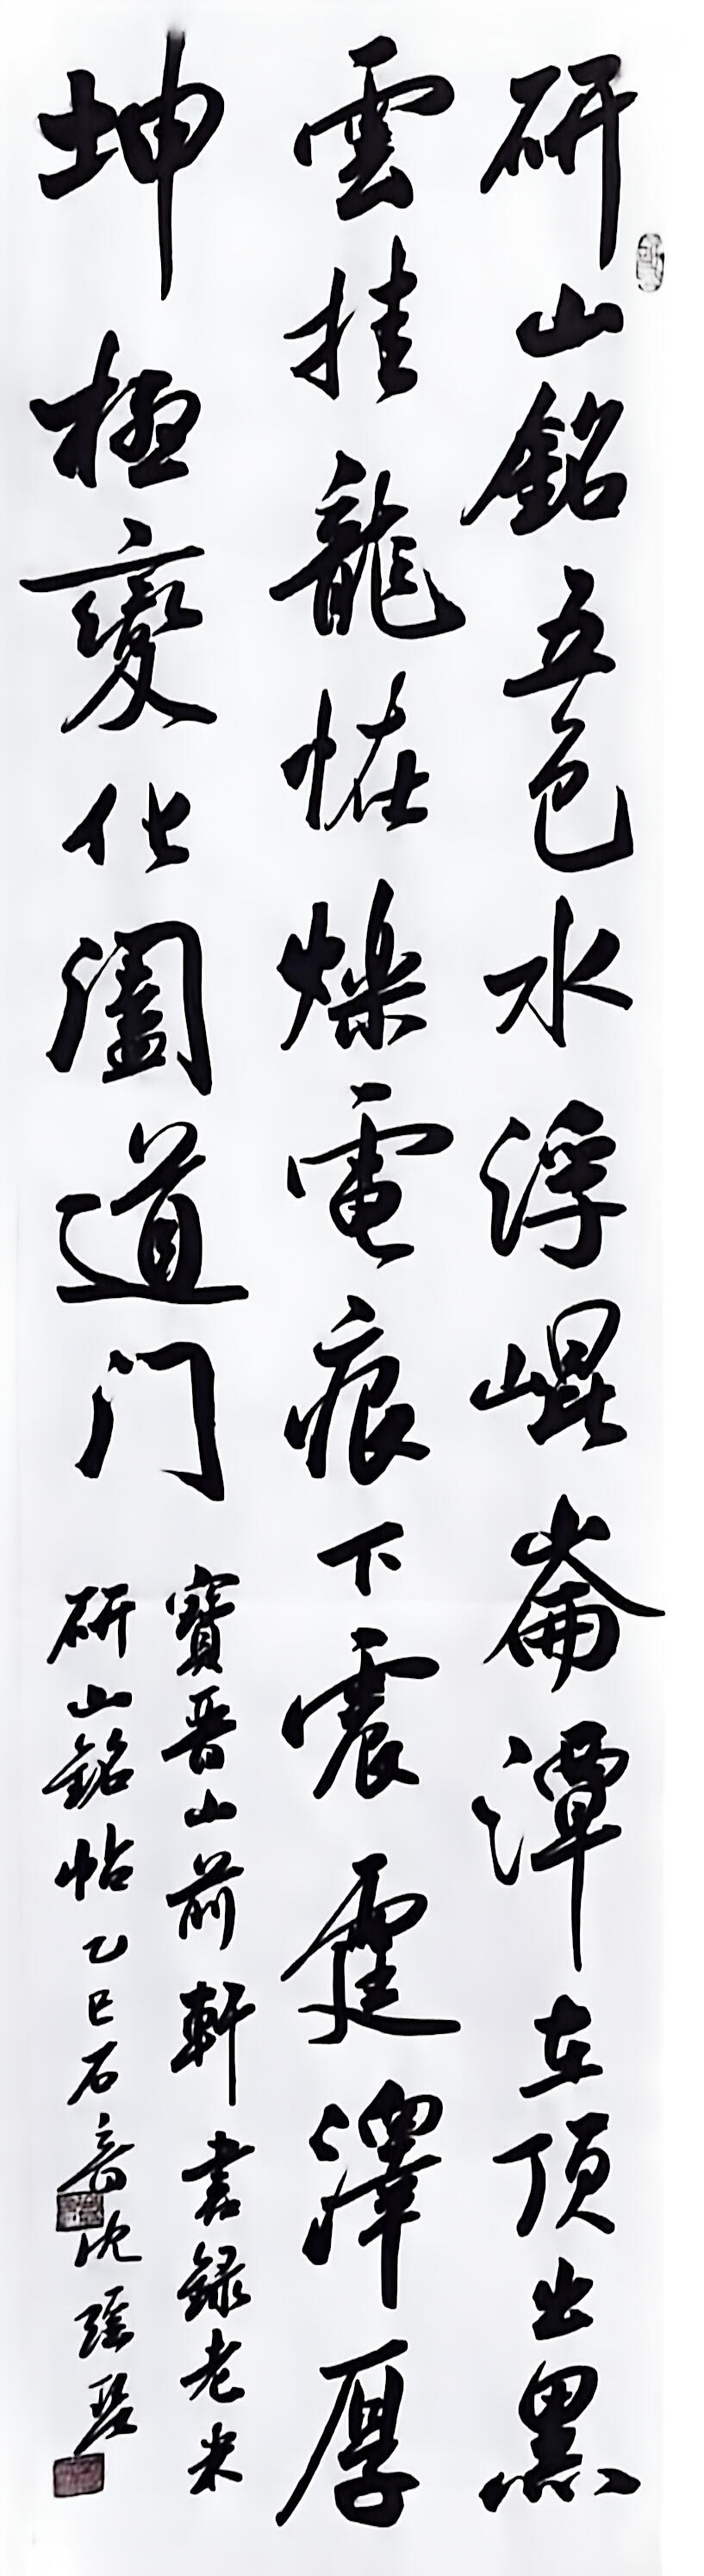 研山銘五色水浮崐崙潭在頂出黑
雲挂龍恠爍電痕下震霆澤厚
坤極變化闔道门
寶晉山前軒書録老米
研山銘帖乙巳石斋沈瑶琴